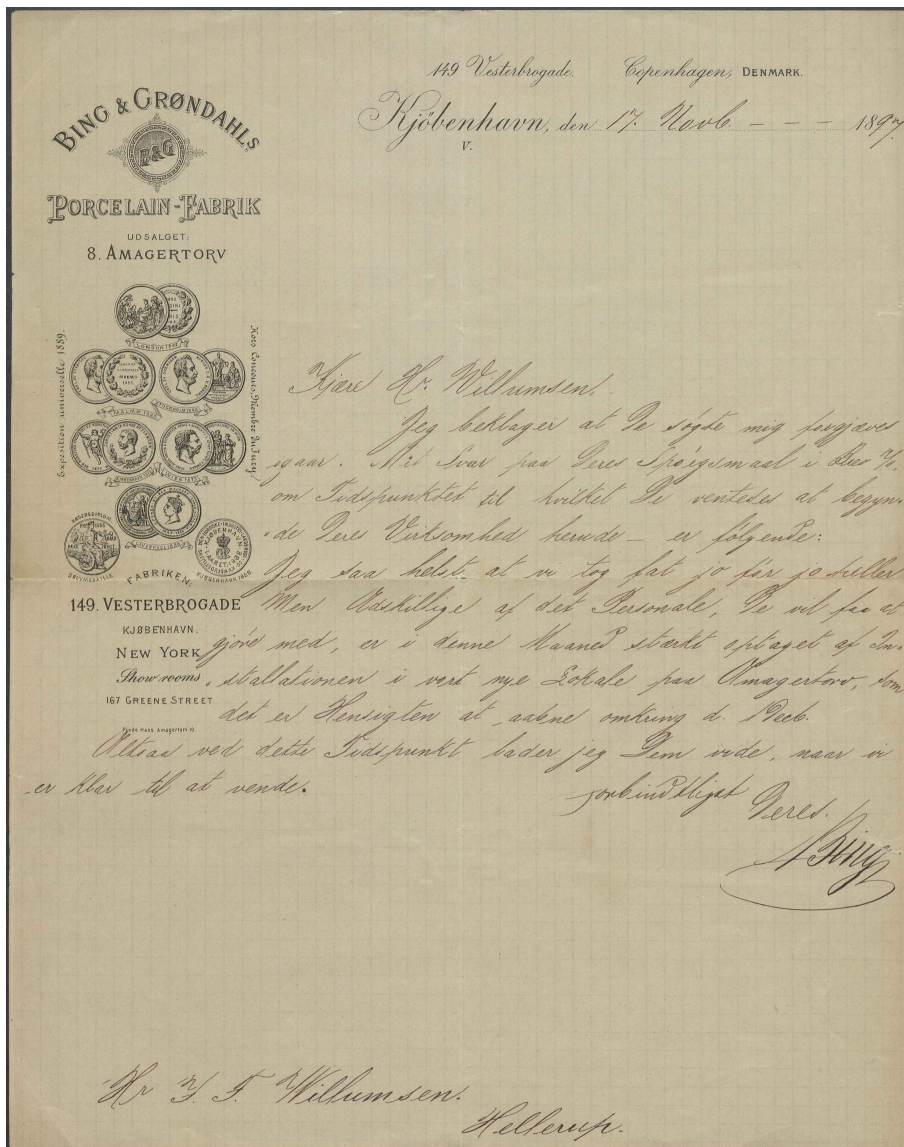 149 Vesterbrogade. Copenhagen, DENMARK.
Kjöbenhavn, den 17. Novb. - - - 1897
V.
BING & GRØNDAHLS
B&G
PORCELAIN-FABRIK
UDSALGET:
8. AMAGERTORV
Exposition universelle 1889.
Hors Concours, Membre du Jury
FABRIKEN:
149. VESTERBROGADE
KJØBENHAVN.
NEW YORK
Show rooms
167 GREENE STREET
Kjære Hr. Willumsen.
Jeg beklager at De søgte mig forgjæves
igaar. Mit Svar paa Deres Spörgsmaal i Brev
om Tidspunktet til hvilket De ventedes at begyn-
de Deres Virksomhed herude - er følgende:
Jeg saa helst at vi tog fat jo før jo heller
Men Adskillige af det Personale, De vil faa at
gjöre med, er i denne Maaned stærkt optaget af In-
stallationen i vort nye Lokale paa Amagertorv, som
det er Hensigten at aabne omkring d. 1 Decb.
Altsaa ved dette Tidspunkt lader jeg Dem vide, naar vi
er klar til at vende.
forbindtligst
Deres.
Bing
Hr J. F. Willumsen.
Hellerup.